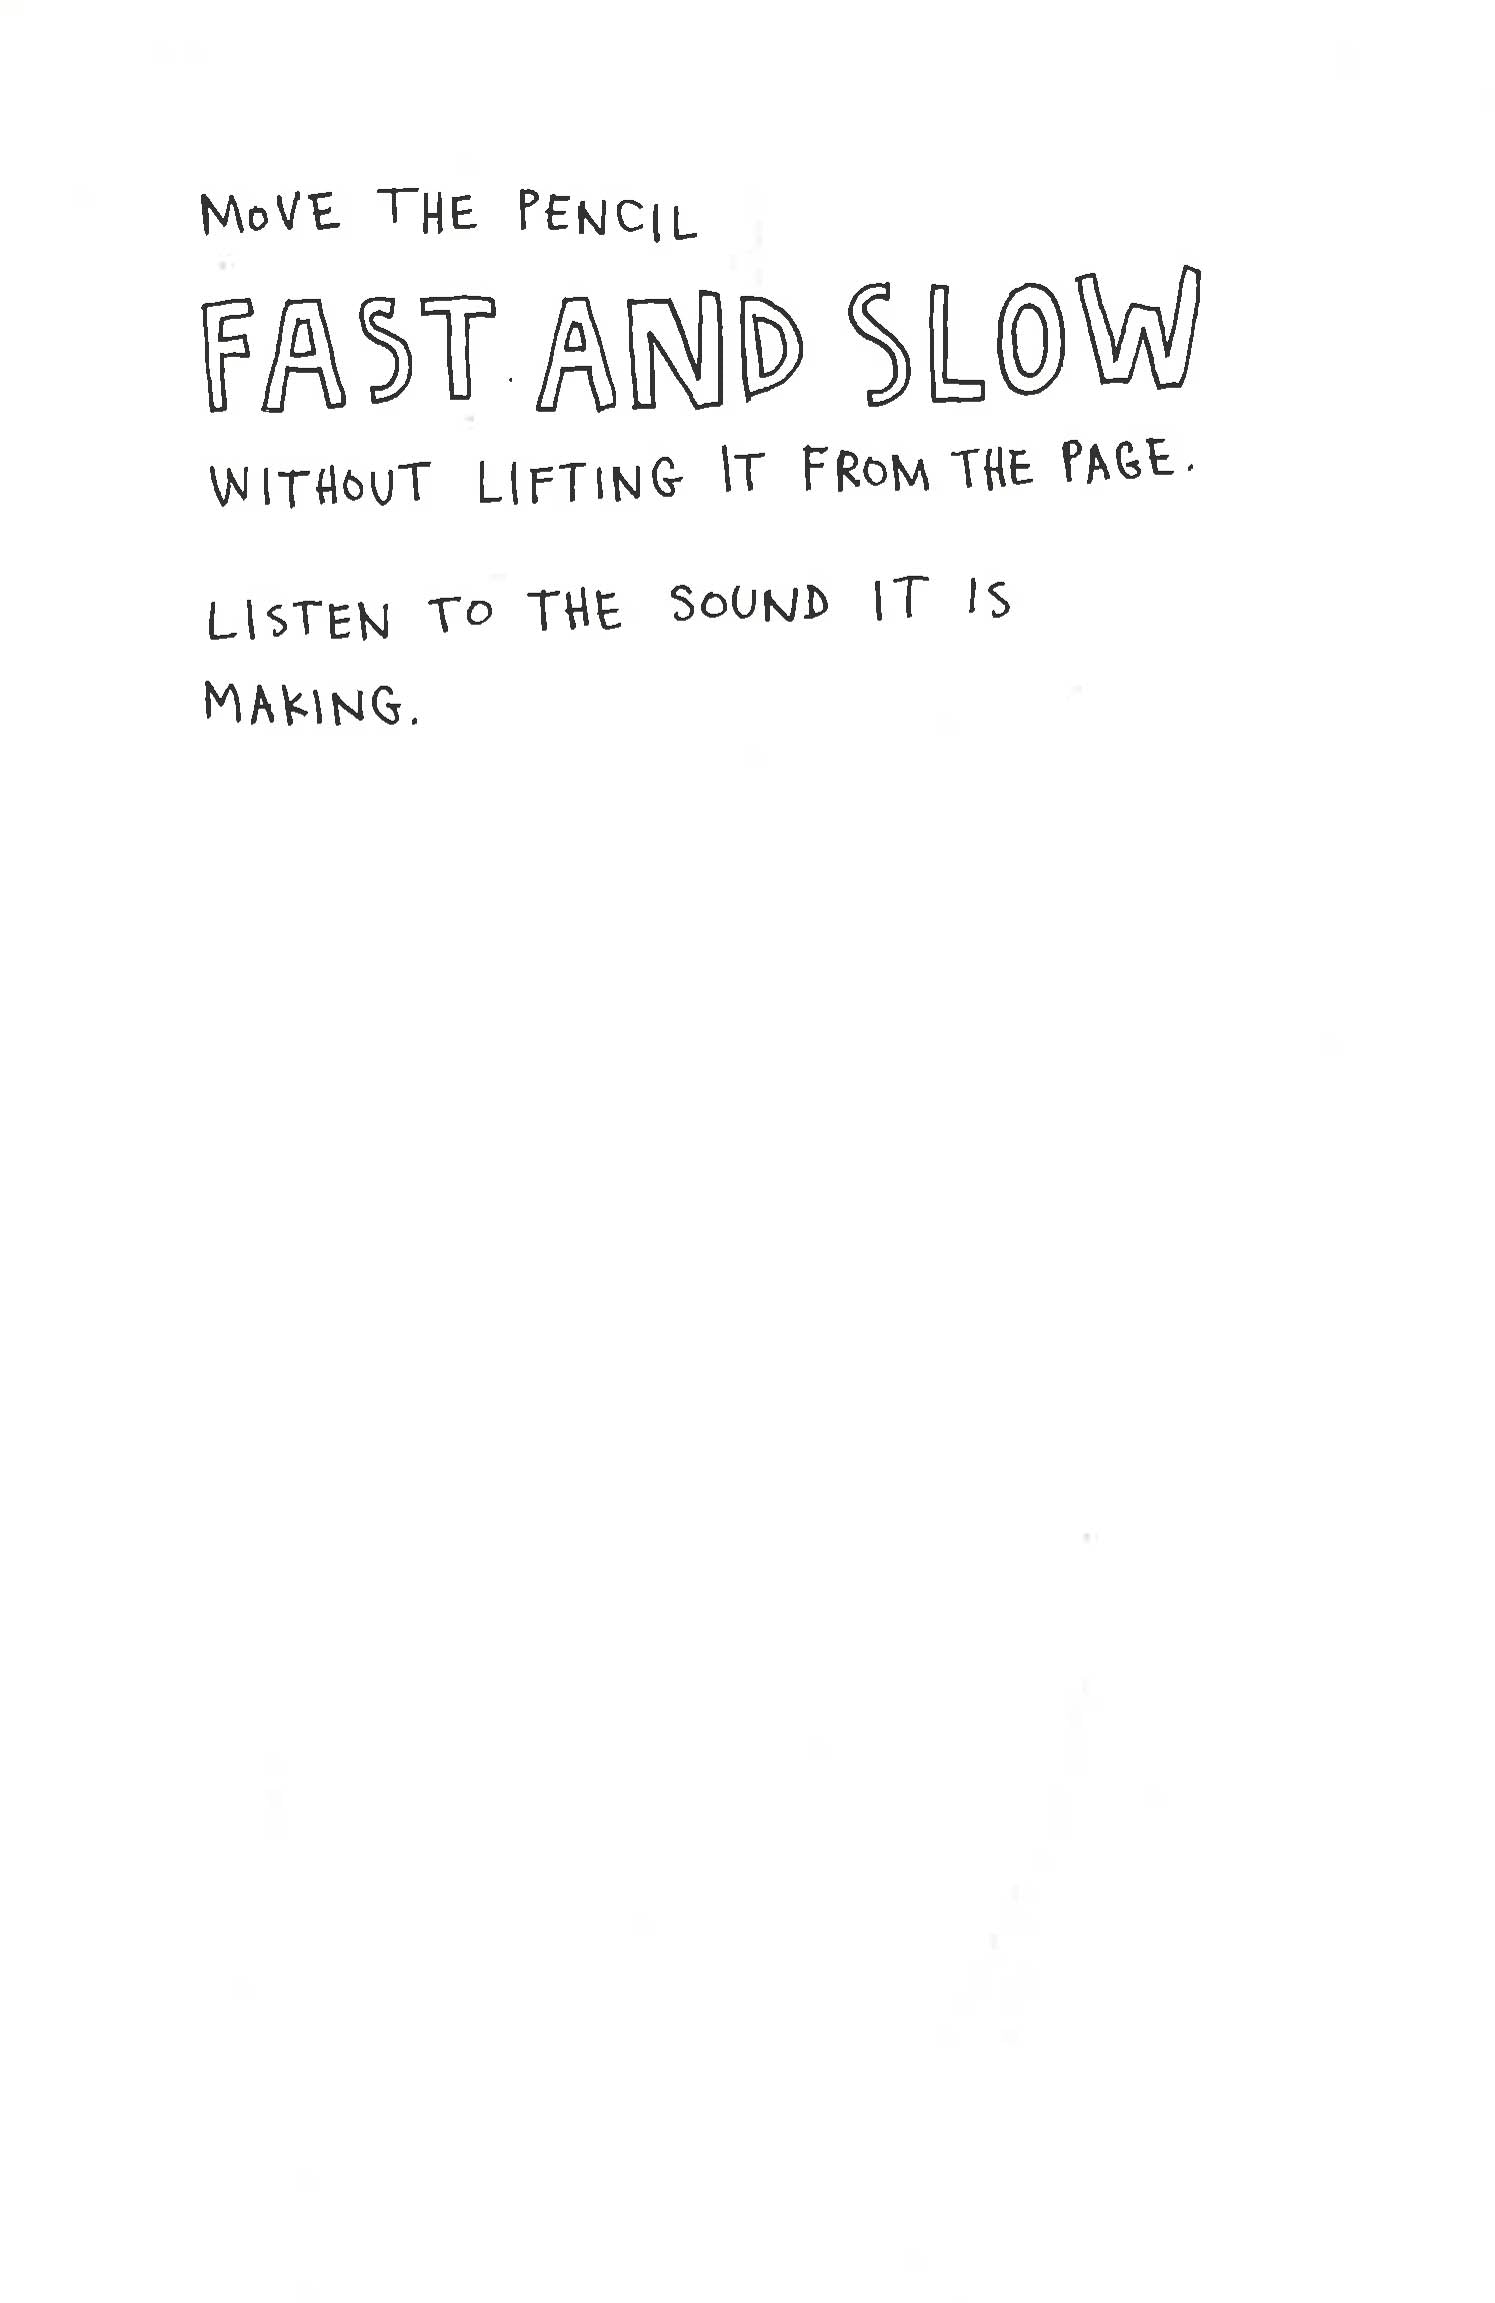 MOVE THE PENCIL
FAST AND SLOW
WITHOUT LIFTING IT FROM THE PAGE.
LISTEN TO THE SOUND IT IS
MAKING.